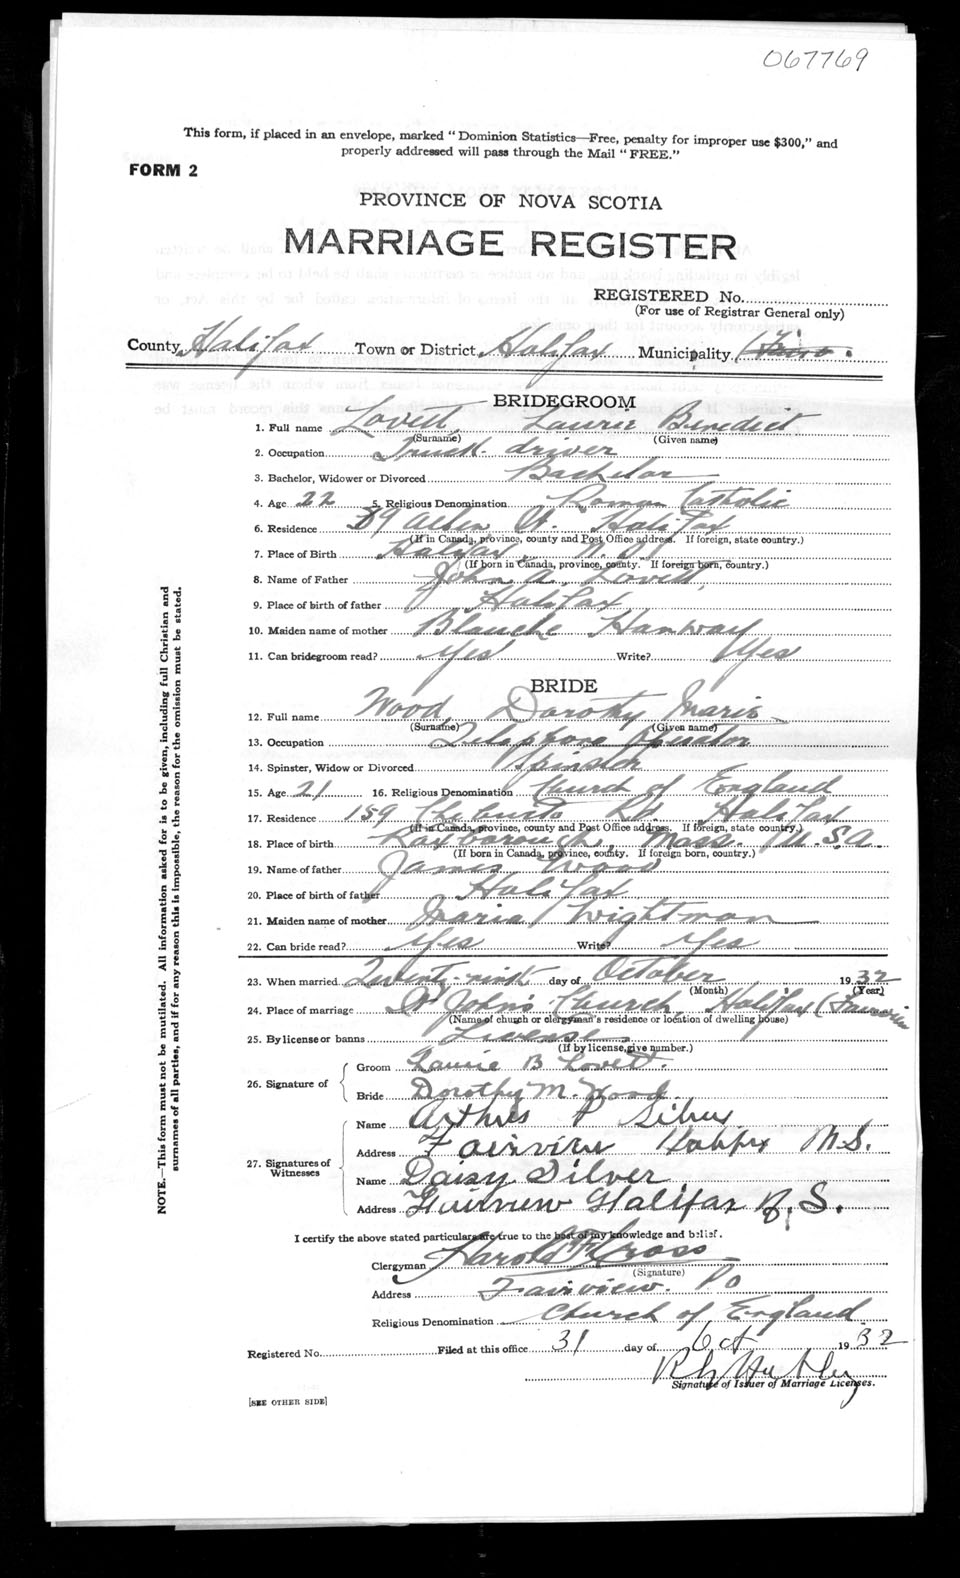 067769
This form, if placed in an envelope, marked "Dominion Statistics—Free, penalty for improper use $300," and
properly addressed will pass through the Mail "FREE."
FORM 2
PROVINCE OF NOVA SCOTIA
MARRIAGE REGISTER
REGISTERED No.
(For use of Registrar General only)
County Halifax Town or District Halifax Municipality
BRIDEGROOM
1. Full name Lovett, Laurie Benedict
(Surname) (Given name)
2. Occupation Truck driver
3. Bachelor, Widower or Divorced Bachelor
4. Age 22 5. Religious Denomination Roman Catholic
6. Residence St. Halifax
(If in Canada, province, county and Post Office address. If foreign, state country.)
7. Place of Birth Halifax, N.S.
(If born in Canada, province, county. If foreign born, country.)
8. Name of Father John A. Lovett
9. Place of birth of father Halifax
10. Maiden name of mother Blanche Hanway
11. Can bridegroom read? Yes Write? Yes
BRIDE
12. Full name Wood, Dorothy Marie
(Surname) (Given name)
13. Occupation Telephone Operator
14. Spinster, Widow or Divorced Spinster
15. Age 21 16. Religious Denomination Church of England
17. Residence 159 Rd. Halifax
(If in Canada, province, county and Post Office address. If foreign, state country.)
18. Place of birth Roxborough, Mass. U.S.A.
(If born in Canada, province, county. If foreign born, country.)
19. Name of father James Wood
20. Place of birth of father Halifax
21. Maiden name of mother Maria Wightman
22. Can bride read? Yes Write? Yes
23. When married Twenty-ninth day of October 1932
(Month) (Year)
24. Place of marriage St John's Church, Halifax (Fairview
(Name of church or clergyman's residence or location of dwelling house)
25. By license or banns License
(If by license, give number.)
26. Signature of Groom Laurie B Lovett.
Bride Dorothy M. Wood.
27. Signatures of Witnesses Name Arthur P Silver
Address Fairview Halifax N.S.
Name Daisy Silver
Address Fairview Halifax N.S.
I certify the above stated particulars are true to the best of my knowledge and belief.
Clergyman Harold F. Cross
(Signature)
Address Fairview. P O
Religious Denomination Church of England
Registered No. Filed at this office 31 day of Oct 1932
Signature of Issuer of Marriage Licenses.
[SEE OTHER SIDE]
NOTE.—This form must not be mutilated. All information asked for is to be given, including full Christian and
surnames of all parties, and if for any reason this is impossible, the reason for the omission must be stated.